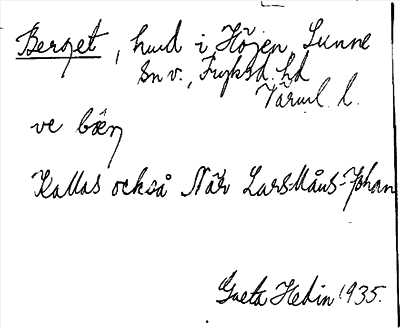 Berget, hmd i Höjen, Sunne
sn v., Fryksd. hd
Värml. l.
ve bæ̂ṇ
Kallas också När Lars-Måns-Johan
Greta Hedin 1935.